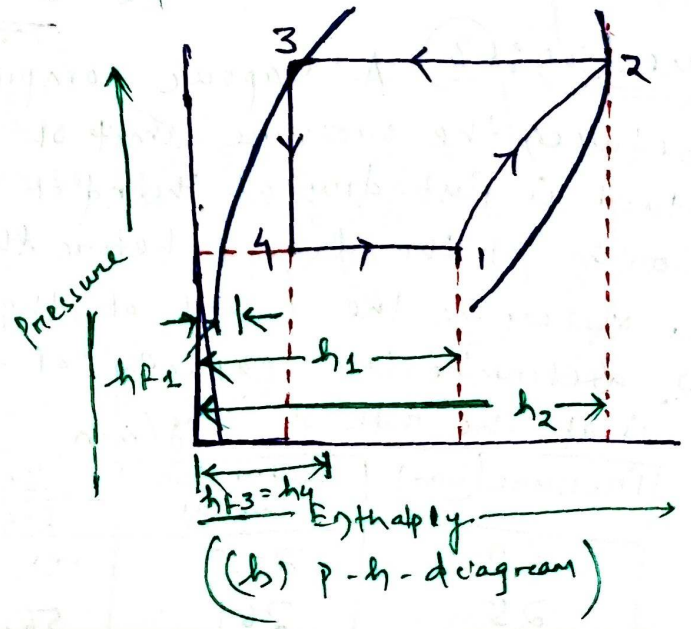 3
2
4
1
Pressure
hF1
h1
h2
hF3=h4
Enthalpy
((b) p-h-diagream)